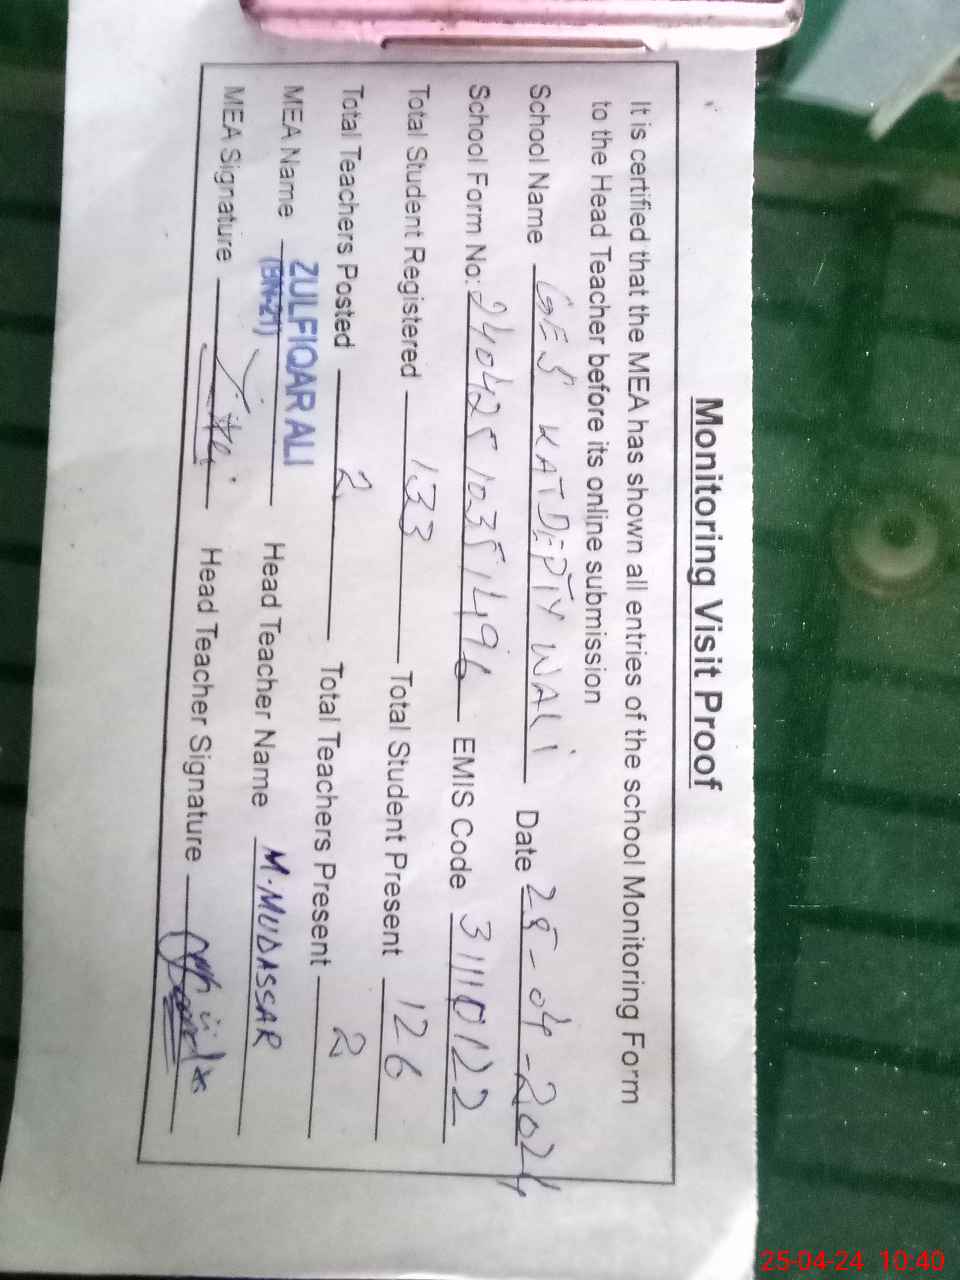 Monitoring Visit Proof
It is certified that the MEA has shown all entries of the school Monitoring Form
to the Head Teacher before its online submission
School Name GES KATDEPTY WALI Date 25-04-2024
School Form No: 24042510351496 EMIS Code 31110122
Total Student Registered 133 Total Student Present 126
Total Teachers Posted 2 Total Teachers Present 2
MEA Name ZULFIQAR ALI (BN-21) Head Teacher Name M.MUDASSAR
MEA Signature Head Teacher Signature
25-04-24 10:40